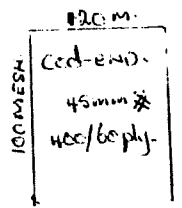 120 M.
100 MESH
Cod-END.
45mm ※
400/60 ply.